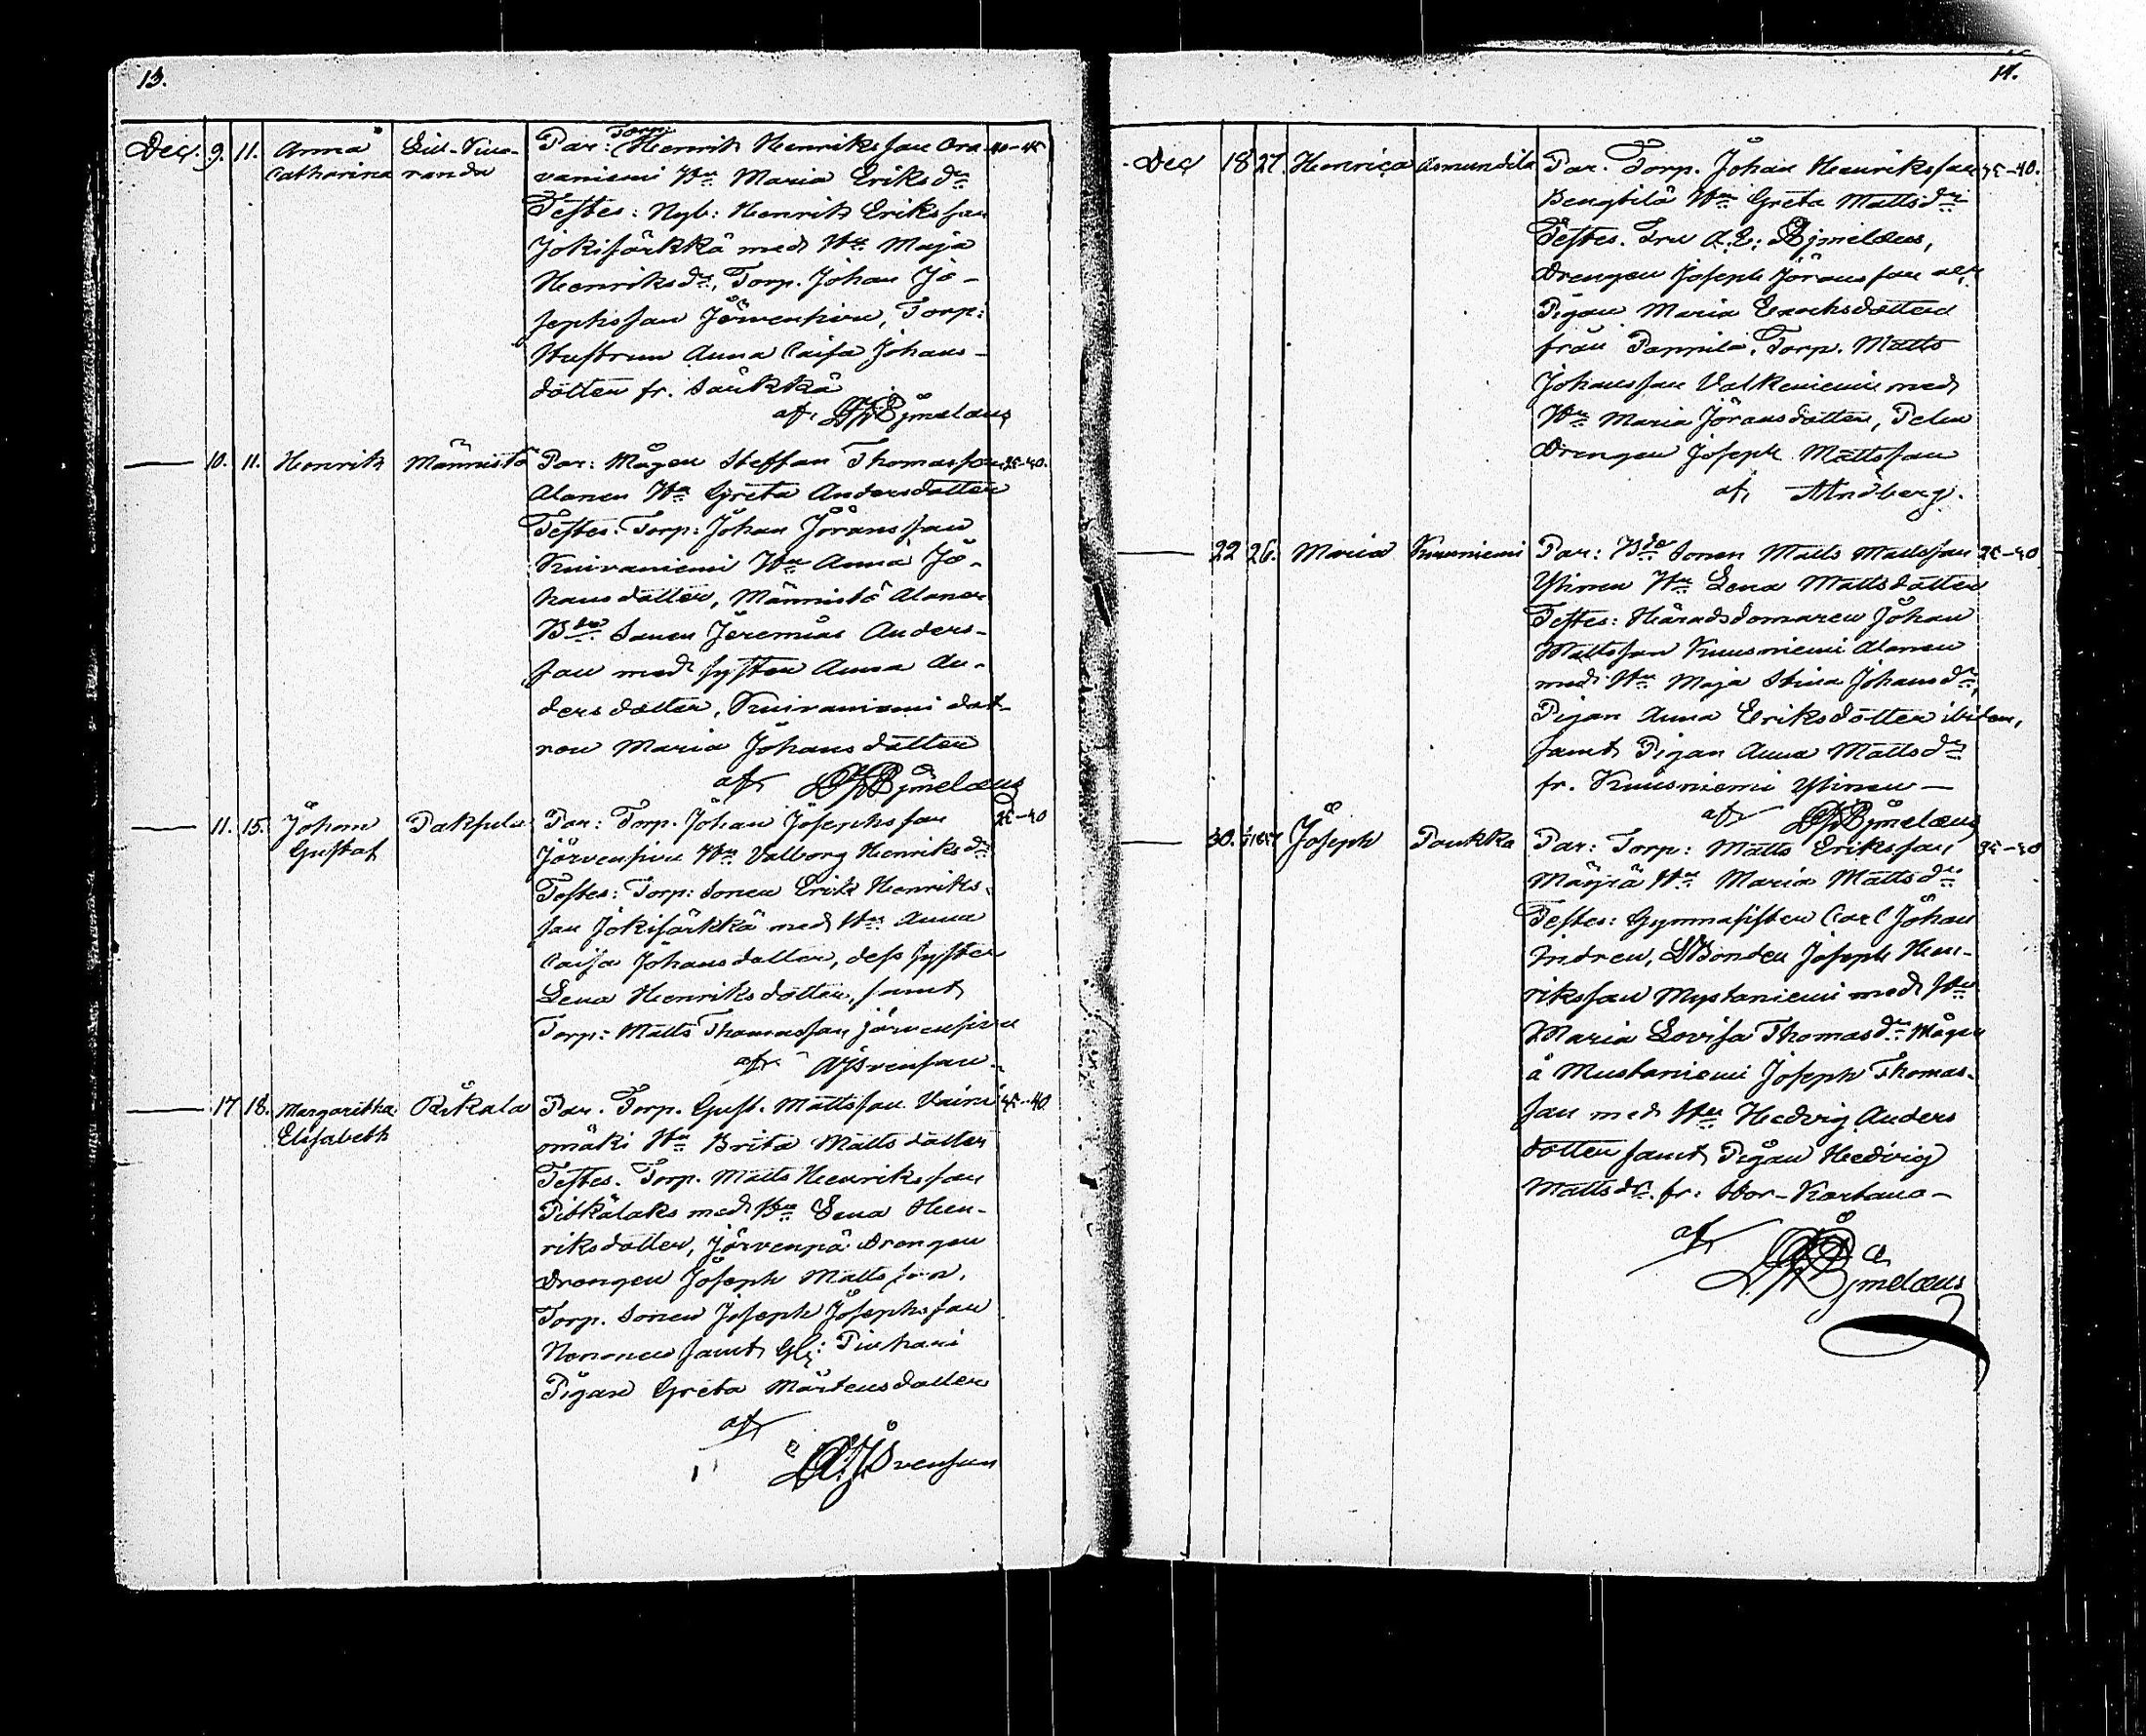 13.
Dec. 9. 11. Anna Lill-Kuu- Par: Torp: Henrik Henriksson Ora- 40-45
Catharina randa vaniemi Hu Maria Eriksdr
Testes: Nyb: Henrik Eriksson
Jokisärkkä med Hu Maja
Henriksdr, Torp. Johan Jo-
sephsson Järvensivu, Torp:
Hustrun Anna Caisa Johans-
dotter fr. Särkkä
af
10. 11. Henrik Männistö Par: Mågen Steffan Thomasson 35-40.
Alanen Hu Greta Andersdotter
Testes: Torp: Johan Jöransson
Kuivaniemi Hu Anna Jo-
hansdotter, Männistö Alanen
Bde Sonen Jeremias Anders-
son med syster Anna An-
dersdotter, Kuivaniemi dot-
ren Maria Johansdotter
af
11. 15. Johan Pakpula Par: Torp. Johan Josephsson 35-40
Gustaf Järvensivu Hu Valborg Henriksdr
Testes: Torp: Sonen Erik Henriks-
son Jokisärkkä med Hu Anna
Caisa Johansdotter, dess syster
Lena Henriksdotter, samt
Torp: Matts Thomasson Järvensivu
af Svensson
17 18. Margaretha Par. Torp. Gust. Mattsson Vaini 40
Elisabeth omäki Hu Brita Mattsdotter
Testes. Torp. Matts Henriksson
Pitkälaks med Hu Lena Hen-
riksdotter, Järvenpä Drengen
Drengen Joseph Mattsson.
Torp. Sonen Joseph Josephsson
Nononen samt
Pigan Greta Mårtensdotter
af
Svensson
14.
Dec 18 27. Henrica Asmundila Par. Torp. Johan Henriksson 35-40.
Bengtilä Hu Greta Mattsdr
Testes. Fru A. E:
Drengen Joseph Jöransson
Pigan Maria Enochsdotter
från Torp. Matts
Johansson Valkeniemi med
Hu Maria Jöransdotter,
Drengen Joseph Mattsson
af
22 26. Maria Kuusniemi Par: Bde Sonen Matts Mattsson 35-40
Ylinen Hu Lena Mattsdotter
Testes: Häradsdomaren Johan
Mattsson Kuusniemi Alanen
med Hu Maja Stina Johansdr,
Pigan Anna Eriksdotter ibidem,
samt Pigan Anna Mattsdr
fr. Kuusniemi Ylinen —
af
30. Joseph Paukka Par: Torp: Matts Eriksson, 35-40
Mäyrä Hu Maria Mattsdr
Testes: Gymnasisten Carl Johan
Indren, Bonden Joseph Hen-
riksson Mustaniemi med Hu
Maria Lovisa Thomasdr Mågen
å Mustaniemi Joseph Thomas-
son med Hu Hedvig Anders
dotter samt Pigan Hedvig
Mattsdr. fr: Stor-Kartano —
af